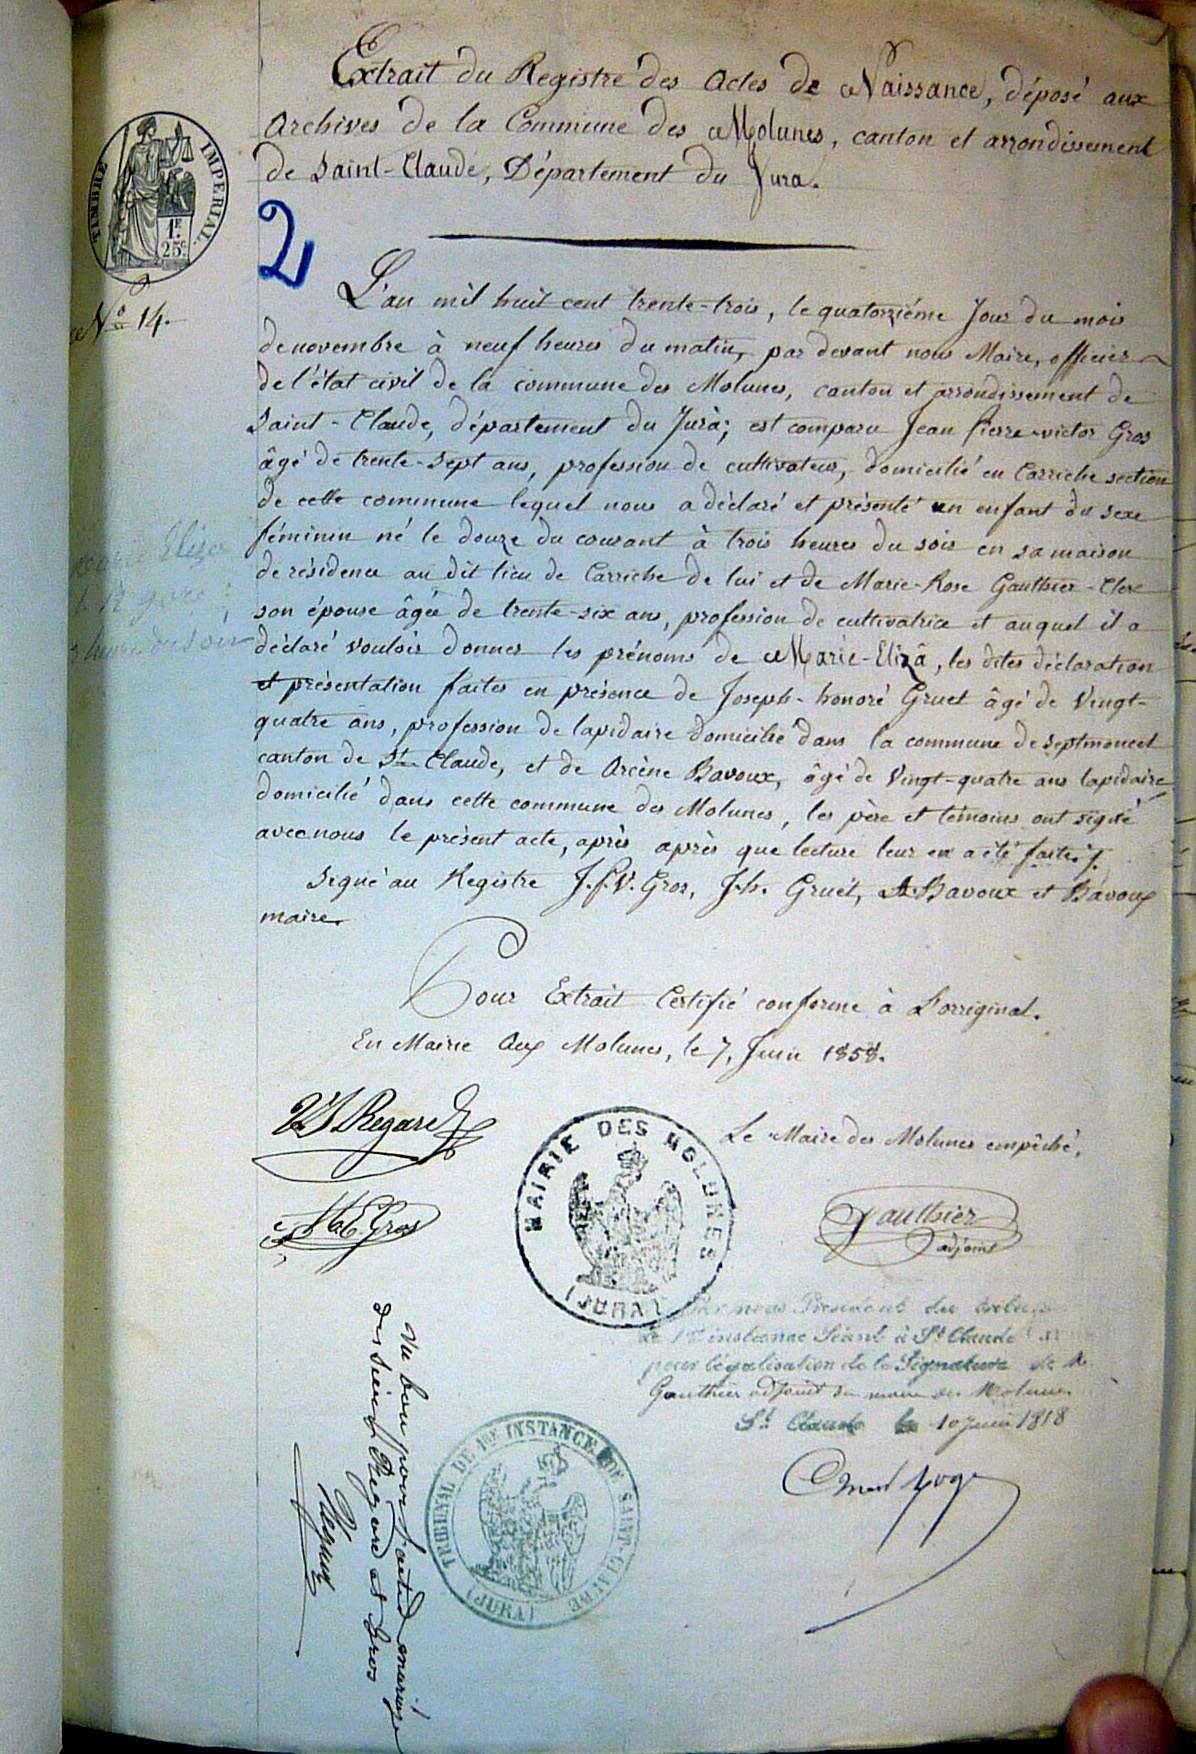 Extrait du Registre des Actes de Naissance, déposé aux
Archives de la Commune des Molunes, canton et arrondissement
de Saint-Claude, Département du Jura.
TIMBRE IMPERIAL
1F.
25c.
2
No 14.
L'an mil huit cent trente-trois, le quatorzième Jour du mois
de novembre à neuf heures du matin, par devant nous Maire, officier
de l'état civil de la commune des Molunes, canton et arrondissement de
Saint-Claude, département du Jura; est comparu Jean pierre-victor Gros
âgé de trente-sept ans, profession de cultivateur, domicilié en Carriche section
de cette commune lequel nous a déclaré et présenté un enfant du sexe
féminin né le douze du courant à trois heures du soir en sa maison
de résidence au dit lieu de Carriche de lui et de Marie-Rose Gauthier-Clerc
son épouse âgée de trente-six ans, profession de cultivatrice et auquel il a
déclaré vouloir donner les prénoms de Marie-Eliza, les dites déclaration
et présentation faites en présence de Joseph-honoré Gruet âgé de Vingt-
quatre ans, profession de lapidaire domicilié dans la commune de septmoncel
canton de St Claude, et de Arcène Bavoux, âgé de Vingt-quatre ans lapidaire
domicilié dans cette commune des Molunes, les père et témoins ont signé
avec nous le présent acte, après après que lecture leur en a été faite.
Signé au Registre J.P.V. Gros, J.h. Gruet, A. Bavoux et Bavoux
maire.
Eliza
heures du soir
Pour Extrait Certifié conforme à L'orriginal.
En Mairie Aux Molunes, le 7, Juin 1858.
Regard
Gros
MAIRIE DES MOLUNES
(JURA)
Le Maire des Molunes empêché,
Gauthier
adjoint
Par nous Président du tribunal
de 1re instance Séant à St Claude
pour légalisation de la Signature de M.
Gauthier adjoint du maire des Molunes
St Claude le 10 juin 1858
TRIBUNAL DE 1RE INSTANCE DE SAINT-CLAUDE
(JURA)
Vu bon pour l'acte de mariage
des sieurs Regard et Gros